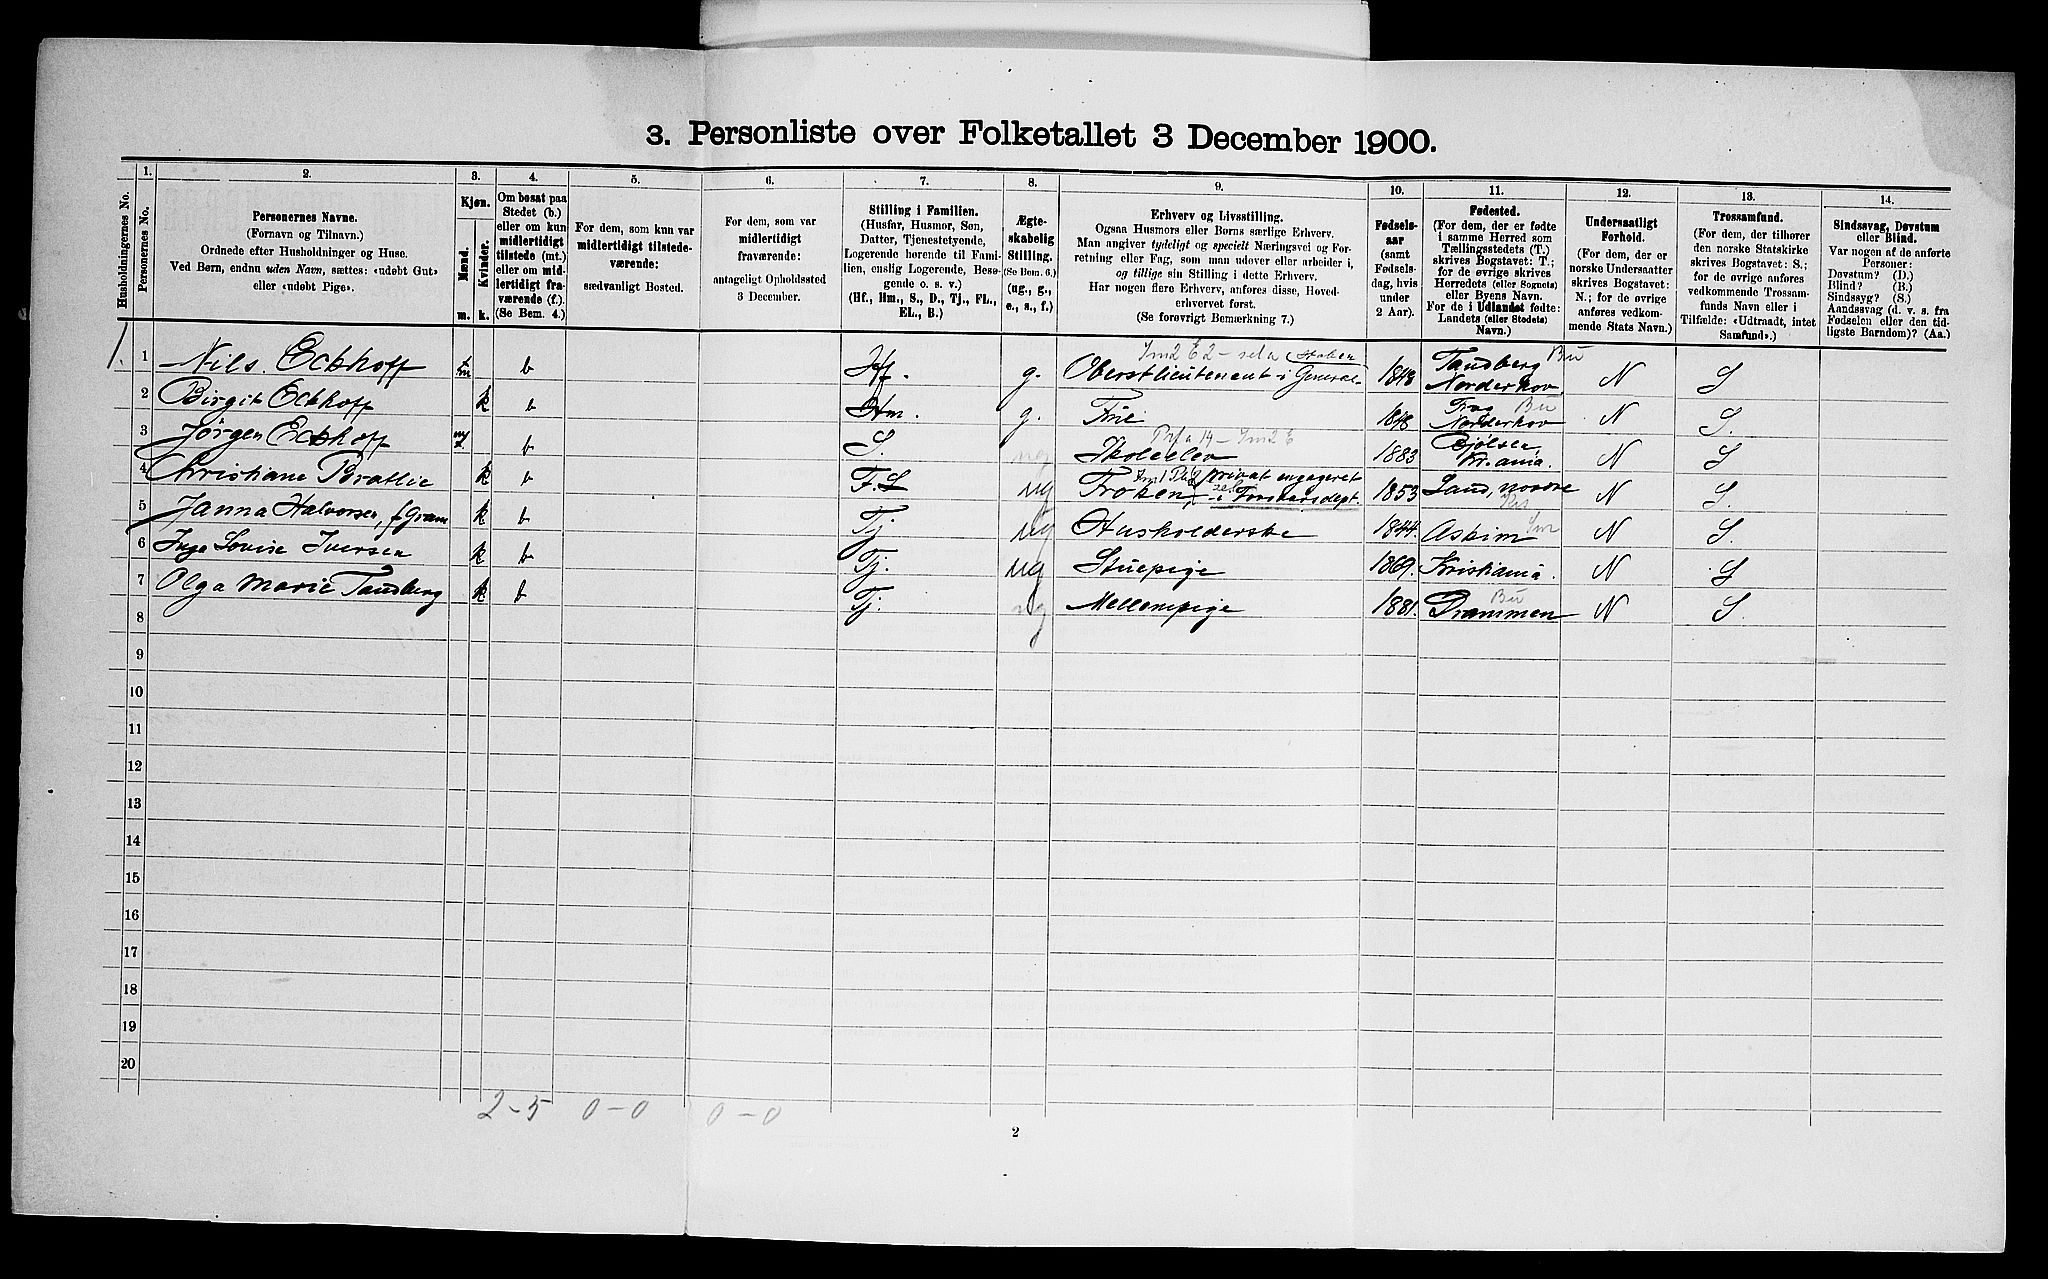 3. Personliste over Folketallet 3 December 1900.
Husholdningernes No.
1.
Personernes No.
2.
Personernes Navne.
(Fornavn og Tilnavn.)
Ordnede efter Husholdninger og Huse.
Ved Børn, endnu uden Navn, sættes: «udøbt Gut»
eller «udøbt Pige».
3.
Kjøn.
Mænd.
Kvinder.
m. k.
4.
Om bosat paa
Stedet (b.)
eller om kun
midlertidigt
tilstede (mt.)
eller om mid-
lertidigt fra-
værende (f.).
(Se Bem. 4.)
5.
For dem, som kun var
midlertidigt tilstede-
værende:
sædvanligt Bosted.
6.
For dem, som var
midlertidigt
fraværende:
antageligt Opholdssted
3 December.
7.
Stilling i Familien.
(Husfar, Husmor, Søn,
Datter, Tjenestetyende,
Logerende hørende til Fami-
lien, enslig Logerende, Besø-
gende o. s. v.)
(Hf., Hm., S., D., Tj., FL.,
EL., B.)
8.
Ægte-
skabelig
Stilling.
(Se Bem. 6.)
(ug., g.,
e., s., f.)
9.
Erhverv og Livsstilling.
Ogsaa Husmors eller Børns særlige Erhverv.
Man angiver tydeligt og specielt Næringsvei og For-
retning eller Fag, som man udover eller arbeider i,
og tillige sin Stilling i dette Erhverv.
Har nogen flere Erhverv, anføres disse, Hoved-
erhvervet først.
(Se forøvrigt Bemærkning 7.)
10.
Fødsels-
aar
(samt
Fødsels-
dag, hvis
under
2 Aar).
11.
Fødested.
(For dem, der er fødte
i samme Herred som
Tællingsstedets (T.)
skrives Bogstavet: T.;
for de øvrige skrives
Herredets (eller Sognets)
eller Byens Navn.
For de i Udlandet fødte:
Landets (eller Stedets)
Navn.)
12.
Undersaatligt
Forhold.
(For dem, der er
norske Undersaatter
skrives Bogstavet:
N.; for de øvrige
anføres vedkom-
mende Stats Navn.)
13.
Trossamfund.
(For dem, der tilhører
den norske Statskirke
skrives Bogstavet: S.;
for de øvrige anføres
vedkommende Trossam-
funds Navn eller i
Tilfælde: «Udtraadt, intet
Samfund».)
14.
Sindssvag, Døvstum
eller Blind.
Var nogen af de anførte
Personer:
Døvstum? (D.)
Blind? (B.)
Sindssyg? (S.)
Aandssvag (d. v. s. fra
Fødselen eller den tid-
ligste Barndom)? (Aa.)
1. 1 Nils Eckhoff m b Hf. g. Oberstlieutenant i General- staben 1848 Tandberg Norderhov Bu N S
2 Birgit Eckhoff k b Hm. g. Frue 1848 Norderhov Bu N S.
3 Jørgen Eckhoff b S. ug Skoleelev 1883 Kr.ania. N S
4 Christiane Bratlie k b F.L ug Frøken, privat engageret i Forsvarsdept. 1853 Land, nordre N S.
5 Janna Halvorsen, f. Gram k b Tj ug Husholderske 1844. Askim Sm N S.
6 Inga Lovise Iversen k b Tj. ug Stuepige 1869. Kristiania. N S
7 Olga Marie Tandberg k b Tj. ug Mellempige 1881. Drammen Bu N S.
8
9
10
11
12
13
14
15
16
17
18
19
20
2-5 0-0 0-0
2